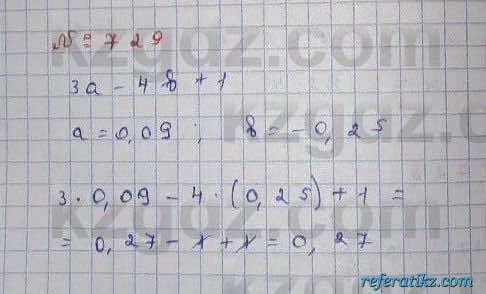 № 729
3a - 4b + 1
a = 0,09 ; b = -0,25
3 · 0,09 - 4 · (0,25) + 1 =
= 0,27 - 1 + 1 = 0,27
kzgaz.com
referatikz.com